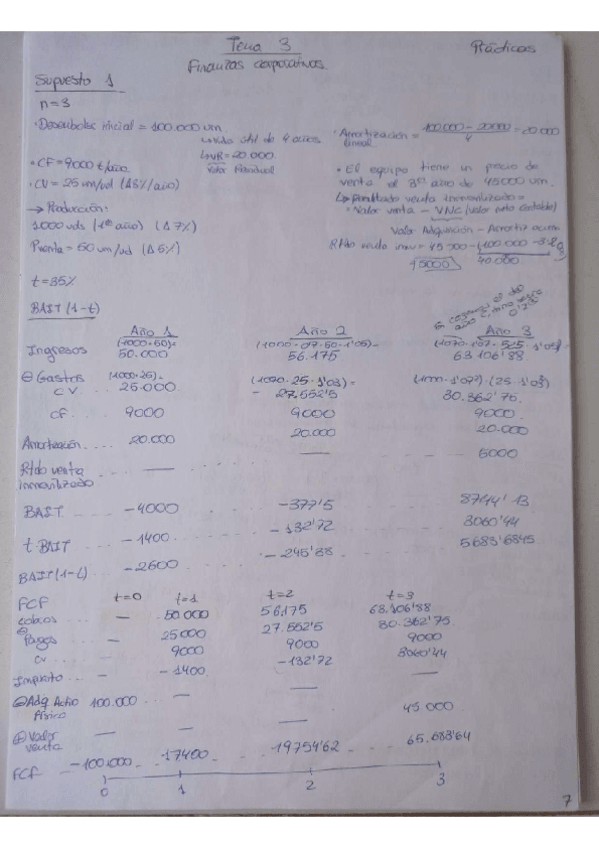 Tema 3
Prácticas
Finanzas corporativas
Supuesto 1
n=3
· Desembolso inicial = 100.000 um
vida útil de 4 años
VR=20.000
Valor Residual
· CF=9000 €/año
· CV=25 um/ud (Δ3%/año)
→ Producción:
1.000 uds (1er año) (Δ7%)
Pventa=50 um/ud (Δ5%)
t=35%
· Amortización = 100.000-20000 = 20.000
lineal
4
· El equipo tiene un precio de
venta el 3er año de 45000 um.
Resultado venta inmovilizado=
· Valor venta - VNC (Valor neto contable)
Valor Adquisición - Amortiz acum
Rtdo venta inmov = 45000-(100.000-3·20
5000
40.000
BAIT(1-t)
Año 1
Año 2
Año 3
Ingresos
(1000·50)=
50.000
56.175
63.106'88
⊖ Gastos
(1000·25)=
(1070·25·1'03)=
CV
25.000
27.552'5
30.362'75
CF
9000
9000
9000
Amortización
20.000
20.000
20.000
Rtdo venta
inmovilizado
—
—
5000
BAIT
-4000
-377'5
8744'13
t·BAIT
-1400
-132'72
3060'44
BAIT(1-t)
-2600
-245'38
5683'6845
FCF
t=0
t=1
t=2
t=3
Cobros
—
50.000
56.175
68.106'88
⊖ Pagos
—
25000
27.552'5
30.362'75
CV
9000
9000
9000
Impuesto
-
-1400
-132'72
3060'44
⊖ Adq. Activo
Físico
100.000
—
—
⊕ Valor
venta
—
—
—
45.000
FCF
-100.000
17400
19754'62
65.683'64
0
1
2
3
7